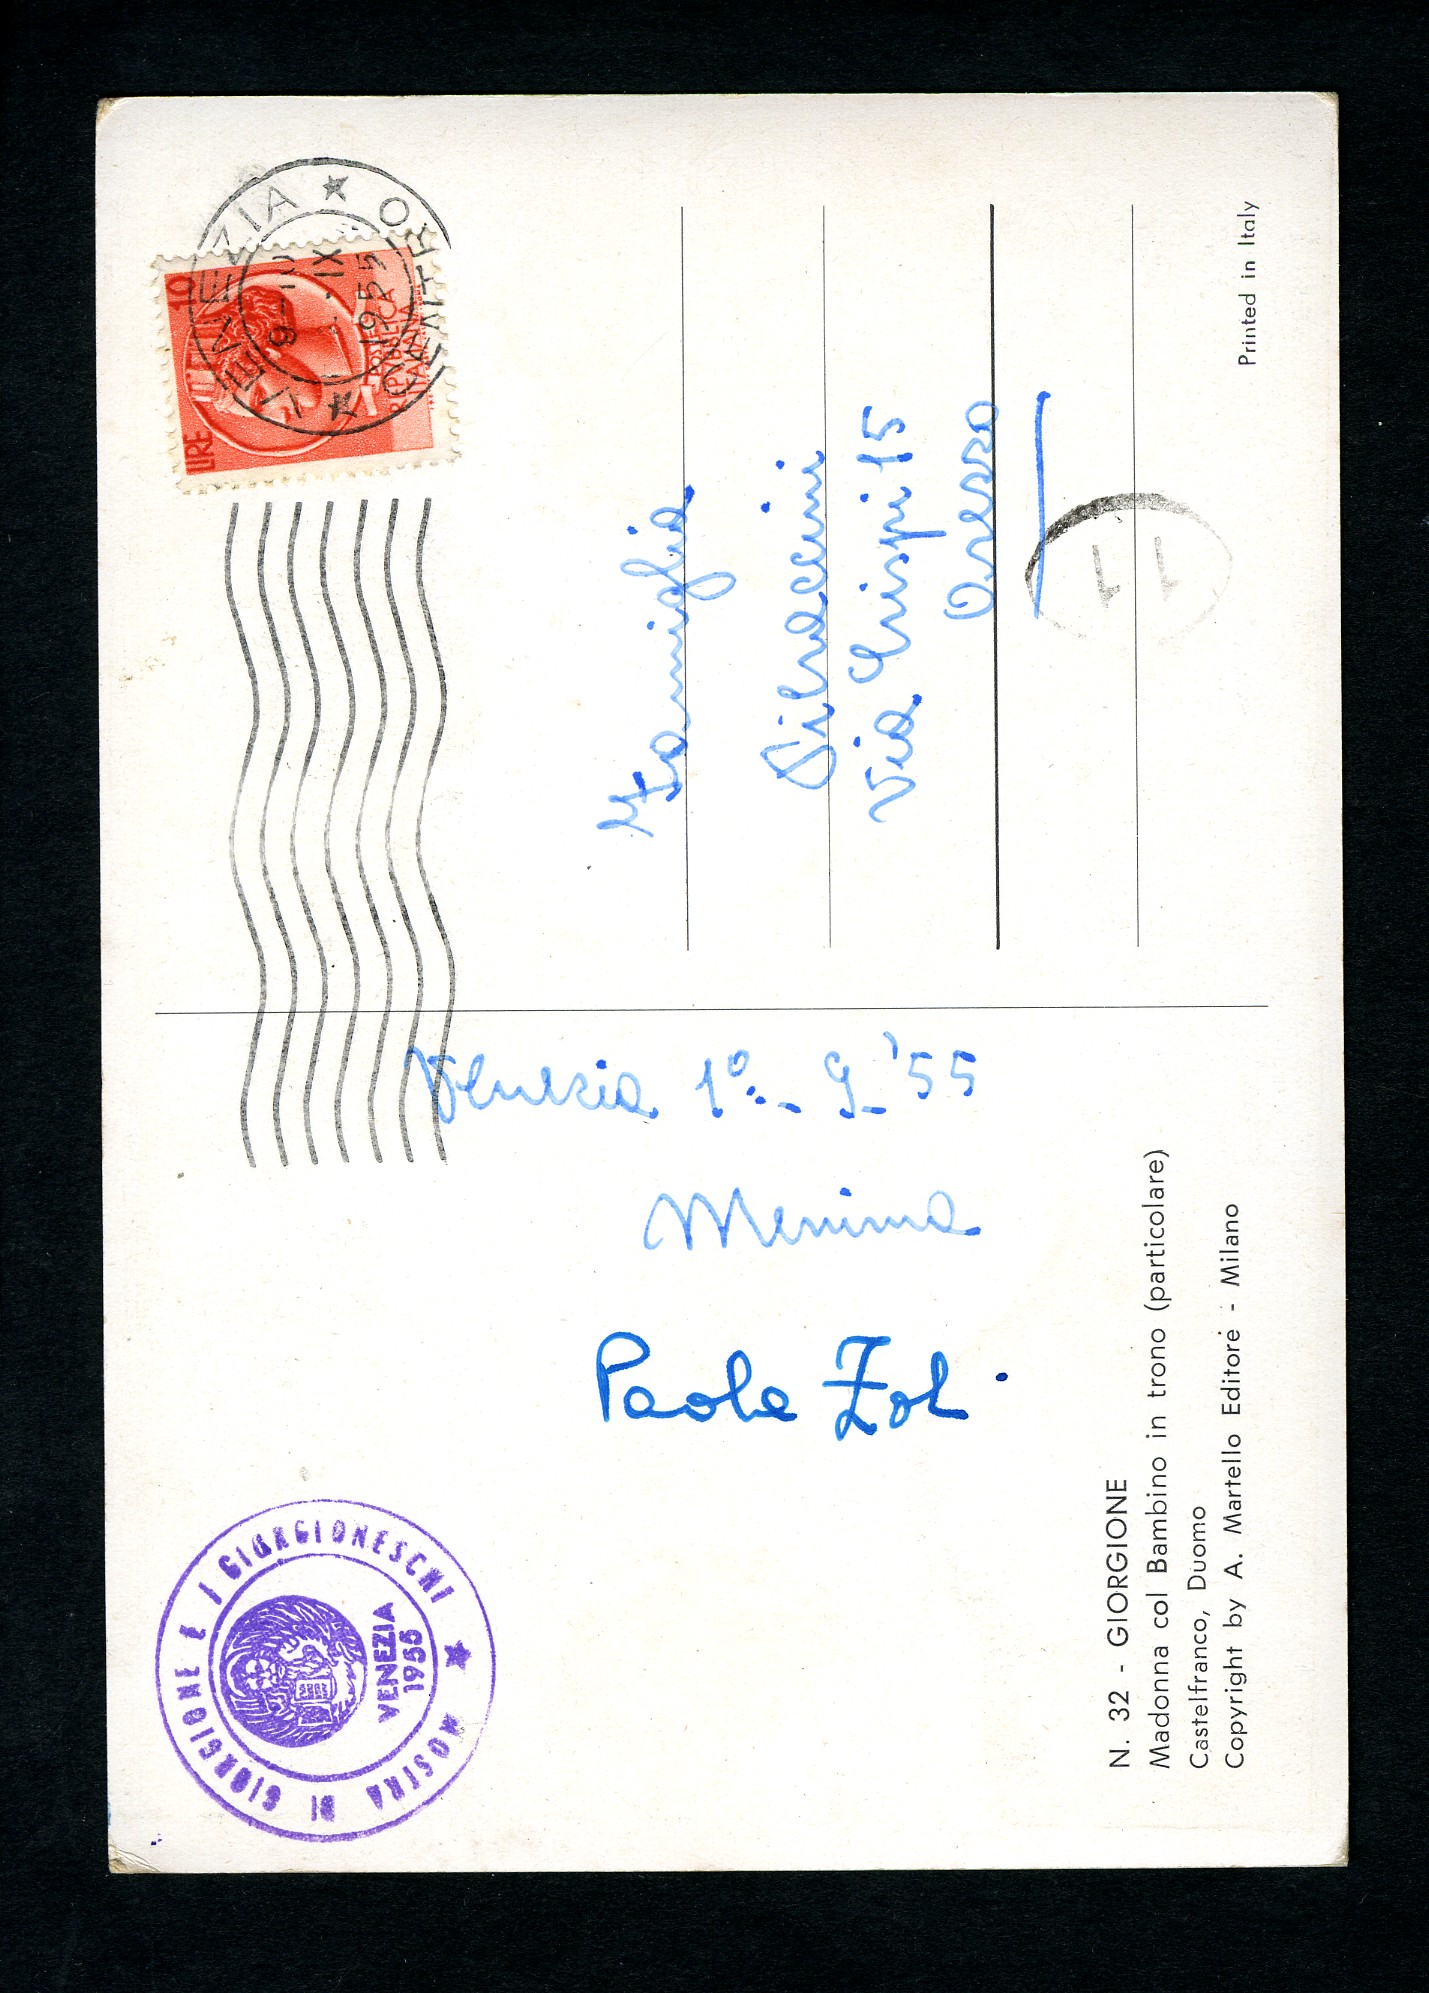 MOSTRA DI GIORGIONE E I GIORGIONESCHI
VENEZIA
1955
Venezia 1º.- 9-'55
Mennina
Paola Zoli
N. 32 - GIORGIONE
Madonna col Bambino in trono (particolare)
Castelfranco, Duomo
Copyright by A. Martello Editore - Milano
LIRE 10
POSTE
REPUBBLICA
ITALIANA
VENEZIA CENTRO
IX
1955
Famiglia
Silvaccini
Via Crispi 15
Arezzo
11
Printed in Italy